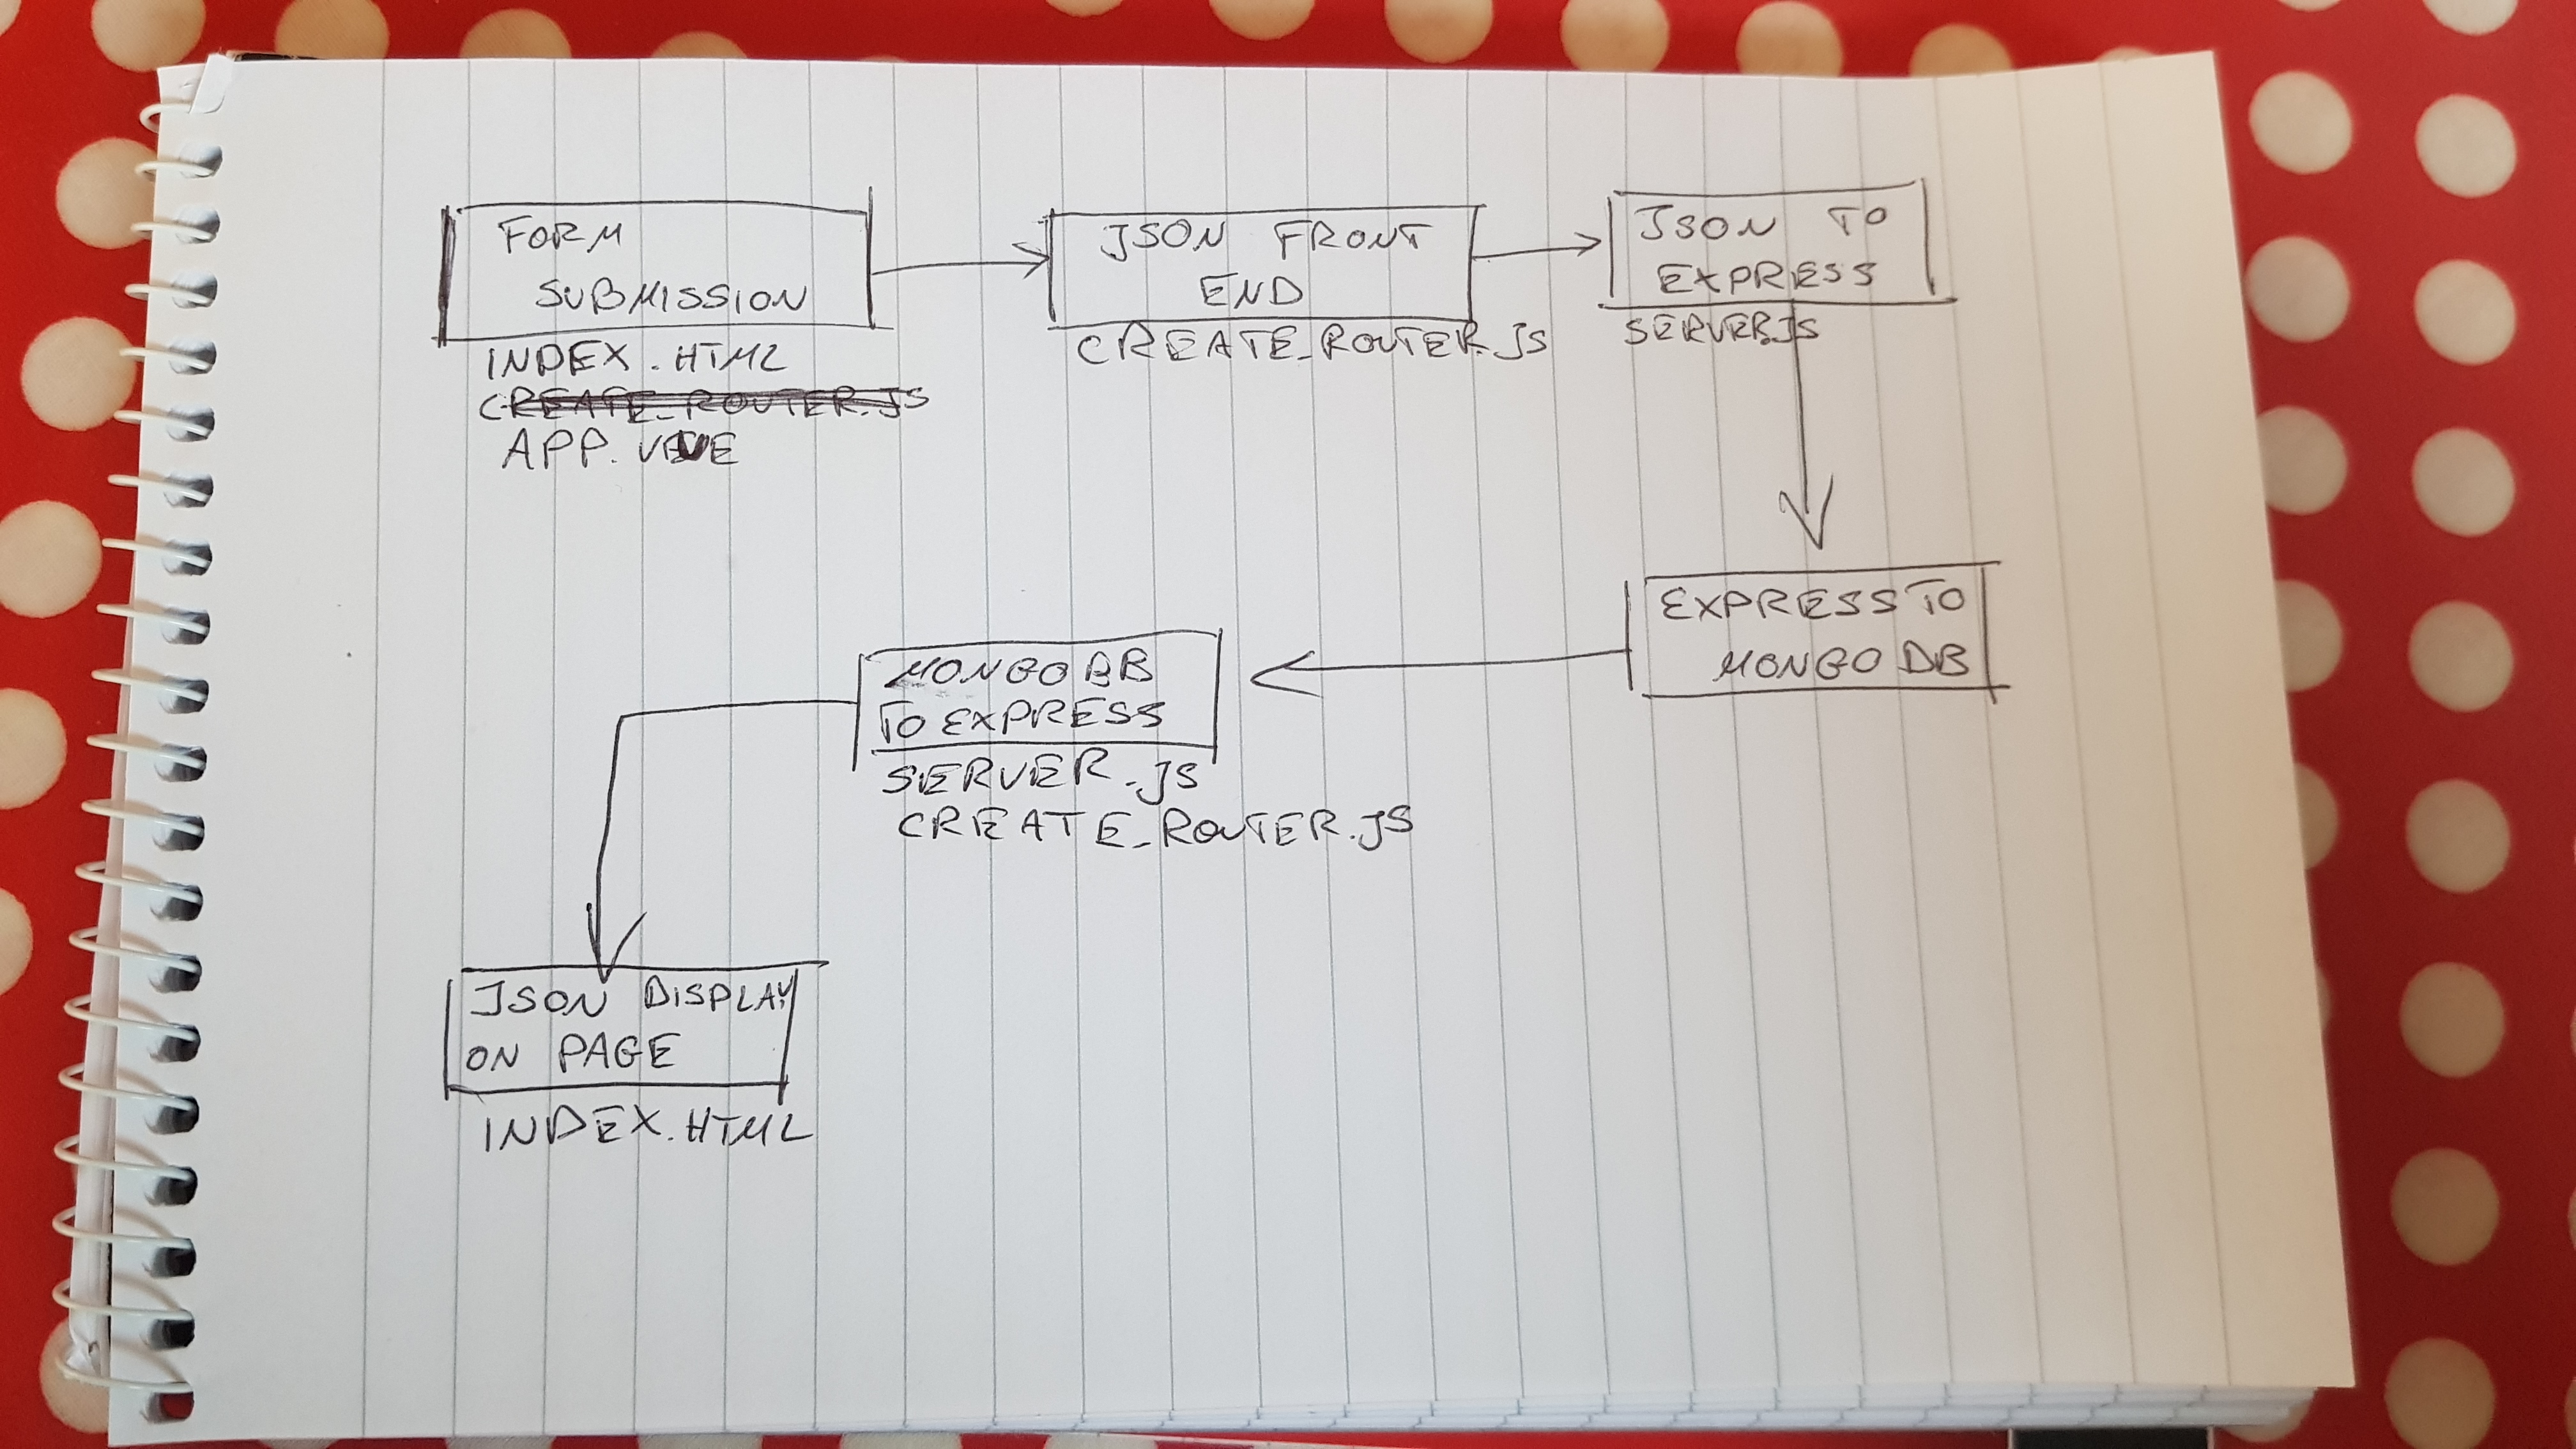 FORM
SUBMISSION
INDEX.HTML
CREATE_ROUTER.JS
APP.VUE
JSON FRONT
END
CREATE_ROUTER.JS
JSON TO
EXPRESS
SERVER.JS
EXPRESS TO
MONGO DB
MONGO DB
TO EXPRESS
SERVER.JS
CREATE_ROUTER.JS
JSON DISPLAY
ON PAGE
INDEX.HTML